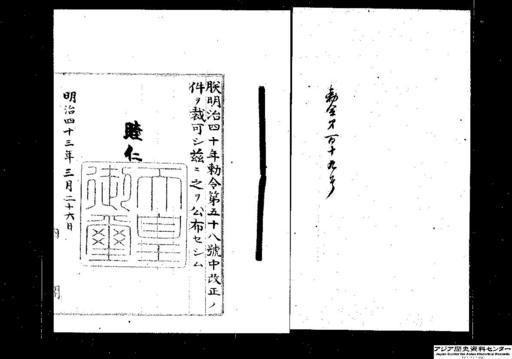 勅令第百十九号
朕明治四十年勅令第五十八號中改正ノ
件ヲ裁可シ茲ニ之ヲ公布セシム
睦仁
天皇
御璽
明治四十三年三月二十六日
アジア歴史資料センター
Japan Center for Asian Historical Records